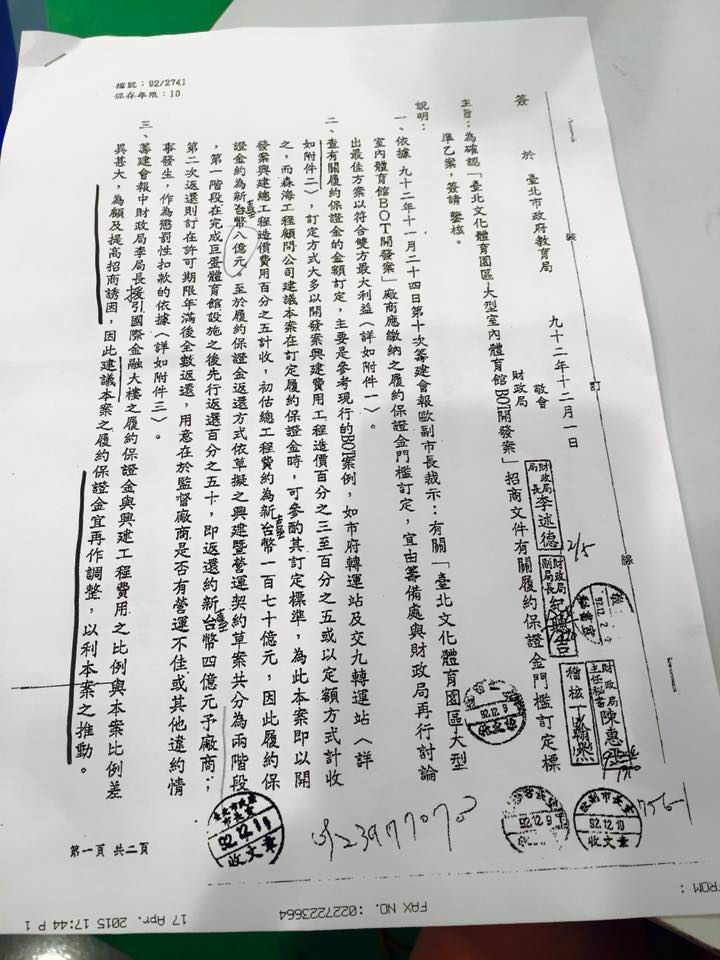 檔號：92/2741
保存年限：10
簽 於 臺北市政府教育局 九十二年十二月一日
敬會
財政局
財政局局長李述德
2/5
財政局副局長
財政局主任秘書陳惠
稽核
主旨：為確認「臺北文化體育園區大型室內體育館BOT開發案」招商文件有關履約保證金門檻訂定標
準乙案，簽請 鑒核。
說明：
一、依據九十二年十一月二十四日第十次籌建會報歐副市長裁示：有關「臺北文化體育園區大型
室內體育館BOT開發案」廠商應繳納之履約保證金門檻訂定，宜由籌備處與財政局再行討論
出最佳方案以符合雙方最大利益（詳如附件一）。
二、查有關履約保證金的金額訂定，主要是參考現行的BOT案例，如市府轉運站及交九轉運站（詳
如附件二），訂定方式大多以開發案興建費用工程造價百分之三至百分之五或以定額方式計收
之，而森海工程顧問公司建議本案在訂定履約保證金時，可參酌其訂定標準，為此本案即以開
發案興建總工程造價費用百分之五計收，初估總工程費約為新台幣一百七十億元，因此履約保
證金約為新台幣八億元。至於履約保證金返還方式依草擬之興建暨營運契約草案共分為兩階段
，第一階段在完成巨蛋體育館設施之後先行返還百分之五十，即返還約新台幣四億元予廠商；
第二次返還則訂在許可期限年滿後全數返還，用意在於監督廠商是否有營運不佳或其他違約情
事發生，作為懲罰性扣款的依據（詳如附件三）。
三、籌建會報中財政局李局長援引國際金融大樓之履約保證金與興建工程費用之比例與本案比例差
異甚大，為顧及提高招商誘因，因此建議本案之履約保證金宜再作調整，以利本案之推動。
92.12.9
92.12.9
92.12.10
收文章
92.12.11
收文章
756-1
23977070
第一頁 共二頁
17 Apr. 2015 17:44 P 1
FAX NO. :0227223664
FROM :